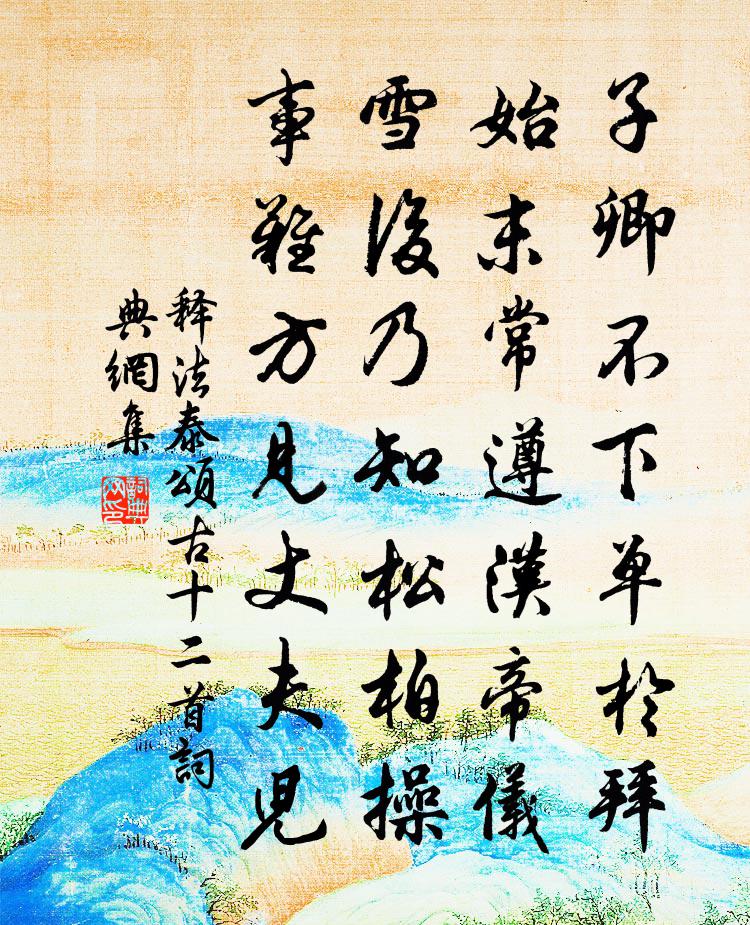 子卿不下单於拜
始末常遵漢帝儀
雪後乃知松柏操
事難方見丈夫児
释法泰頌古十二首詞
典網集